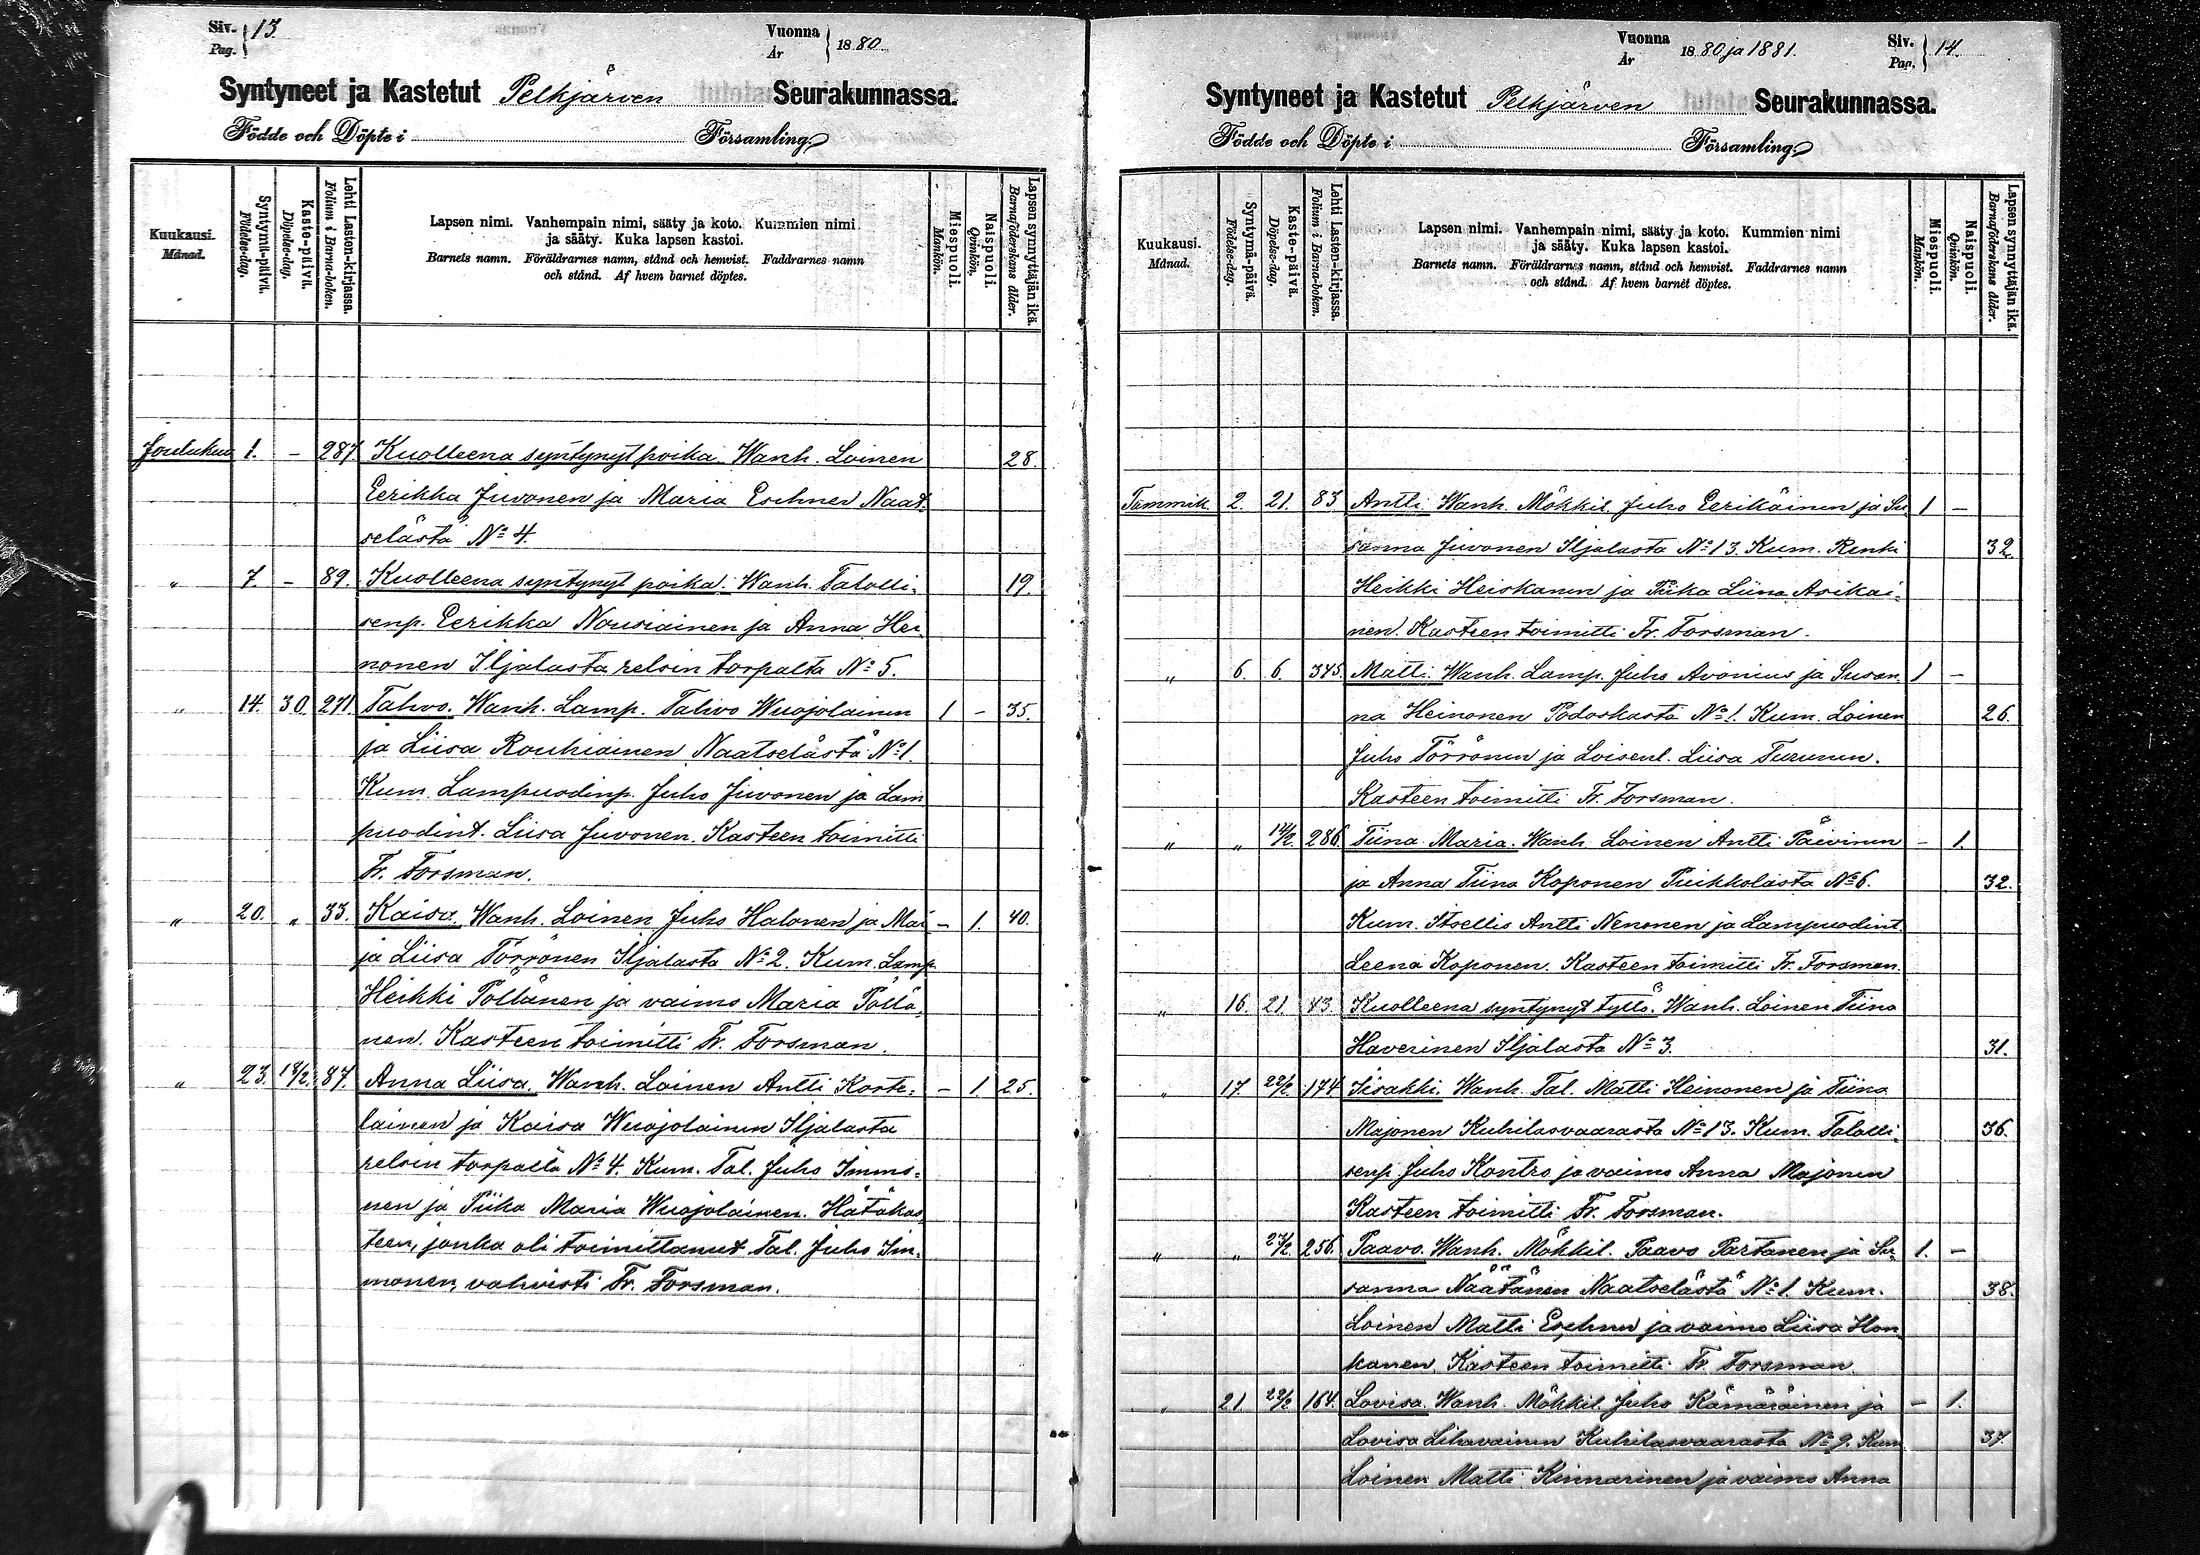 Siv. 13.
Pag.
Vuonna 1880
År
Syntyneet ja Kastetut Pelkjärven Seurakunnassa.
Födde och Döpte i Församling
Kuukausi. Månad.
Syntymä-päivä. Födelse-dag.
Kaste-päivä. Döpelse-dag.
Lehti Lasten-kirjassa. Folium i Barna-boken.
Lapsen nimi. Vanhempain nimi, sääty ja koto. Kummien nimi
ja sääty. Kuka lapsen kastoi.
Barnets namn. Föräldrarnes namn, stånd och hemvist. Faddrarnes namn
och stånd. Af hvem barnet döptes.
Miespuoli. Mankön.
Naispuoli. Qvinkön.
Lapsen synnyttäjän ikä. Barnaföderskans ålder.
Jouluku 1. – 287. Kuolleena syntynyt poika. Wanh. Loinen 28.
Eerikka Juvonen ja Maria Eschner Naat-
selästä No 4.
" 7. – 89. Kuolleena syntynyt poika. Wanh. Talolli- 19.
senp. Eerikka Nousiainen ja Anna Hei-
nonen Iljalasta relsin torpalta No 5.
" 14. 30. 271. Tahvo. Wanh. Lamp. Tahvo Wuojolainen 1 – 35.
ja Liisa Rouhiainen Naatselästä No 1.
Kum. Lampuodinp. Juho Juvonen ja Lam
puodint. Liisa Juvonen. Kasteen toimitti
Fr. Forsman.
" 20. " 33. Kaisa. Wanh. Loinen Juho Halonen ja Mai – 1. 40.
ja Liisa Törrönen Iljalasta No 2. Kum. Lamp.
Heikki Pöllänen ja vaimo Maria Pöllä-
nen. Kasteen toimitti Fr. Forsman.
" 23. 18/2. 87. Anna Liisa. Wanh. Loinen Antti Koste- – 1. 25.
lainen ja Kaisa Wuojolainen Iljalasta
relsin torpalta No 4. Kum. Tal. Juho Immo-
nen ja Piika Maria Wuojolainen. Hätäkas-
teen, jonka oli toimittanut Tal. Juho Im-
monen, vahvisti Fr. Forsman.
Vuonna 1880 ja 1881.
År
Siv. 14.
Pag.
Syntyneet ja Kastetut Pelkjärven Seurakunnassa.
Födde och Döpte i Församling
Kuukausi. Månad.
Syntymä-päivä. Födelse-dag.
Kaste-päivä. Döpelse-dag.
Lehti Lasten-kirjassa. Folium i Barna-boken.
Lapsen nimi. Vanhempain nimi, sääty ja koto. Kummien nimi
ja sääty. Kuka lapsen kastoi.
Barnets namn. Föräldrarnes namn, stånd och hemvist. Faddrarnes namn
och stånd. Af hvem barnet döptes.
Miespuoli. Mankön.
Naispuoli. Qvinkön.
Lapsen synnyttäjän ikä. Barnaföderskans ålder.
Tammik. 2. 21. 83 Antti. Wanh. Mökkil. Juho Eerikäinen ja Su- 1 –
sanna Juvonen Iljalasta No 13. Kum. Renki 32.
Heikki Heiskanen ja Piika Liina Asikai-
nen. Kasteen toimitti Fr. Forsman.
" 6. 6. 375. Matti. Wanh. Lamp. Juho Avonius ja Susan- 1 –
na Heinonen Podoskasta No 1. Kum. Loinen 26.
Juho Törrönen ja Loisenl. Liisa Turunen.
Kasteen toimitti Fr. Forsman.
" " 14/2. 286. Tiina Maria. Wanh. Loinen Antti Päivinen – 1.
ja Anna Tiina Koponen Puikkolasta No 6. 32.
Kum. Itsellis Antti Nenonen ja Lampuodint
Leena Koponen. Kasteen toimitti Fr. Forsman.
" 16. 21. 43. Kuolleena syntynyt tyttö. Wanh. Loinen Tiina
Haverinen Iljalasta No 3. 31.
" 17. 22/2. 174 Iisakki. Wanh. Tal. Matti Heinonen ja Tiina
Majonen Kuhilasvaarasta No 13. Kum. Talolli- 36.
senp. Juho Kontro ja vaimo Anna Majonen
Kasteen toimitti Fr. Forsman.
" " 27/2. 256. Paavo. Wanh. Mökkil. Paavo Partanen ja Su- 1. –
sanna Näätänen Naatselästä No 1. Kum. 38.
Loinen Matti Eschner ja vaimo Liisa Hon
kanen. Kasteen toimitti Fr. Forsman.
" 21. 22/2 164. Lovisa. Wanh. Mökkil. Juho Kämäräinen ja – 1.
Lovisa Lihavainen Kuhilasvaarasta No 9. Kum 37.
Loinen Matti Kinnarinen ja vaimo Anna